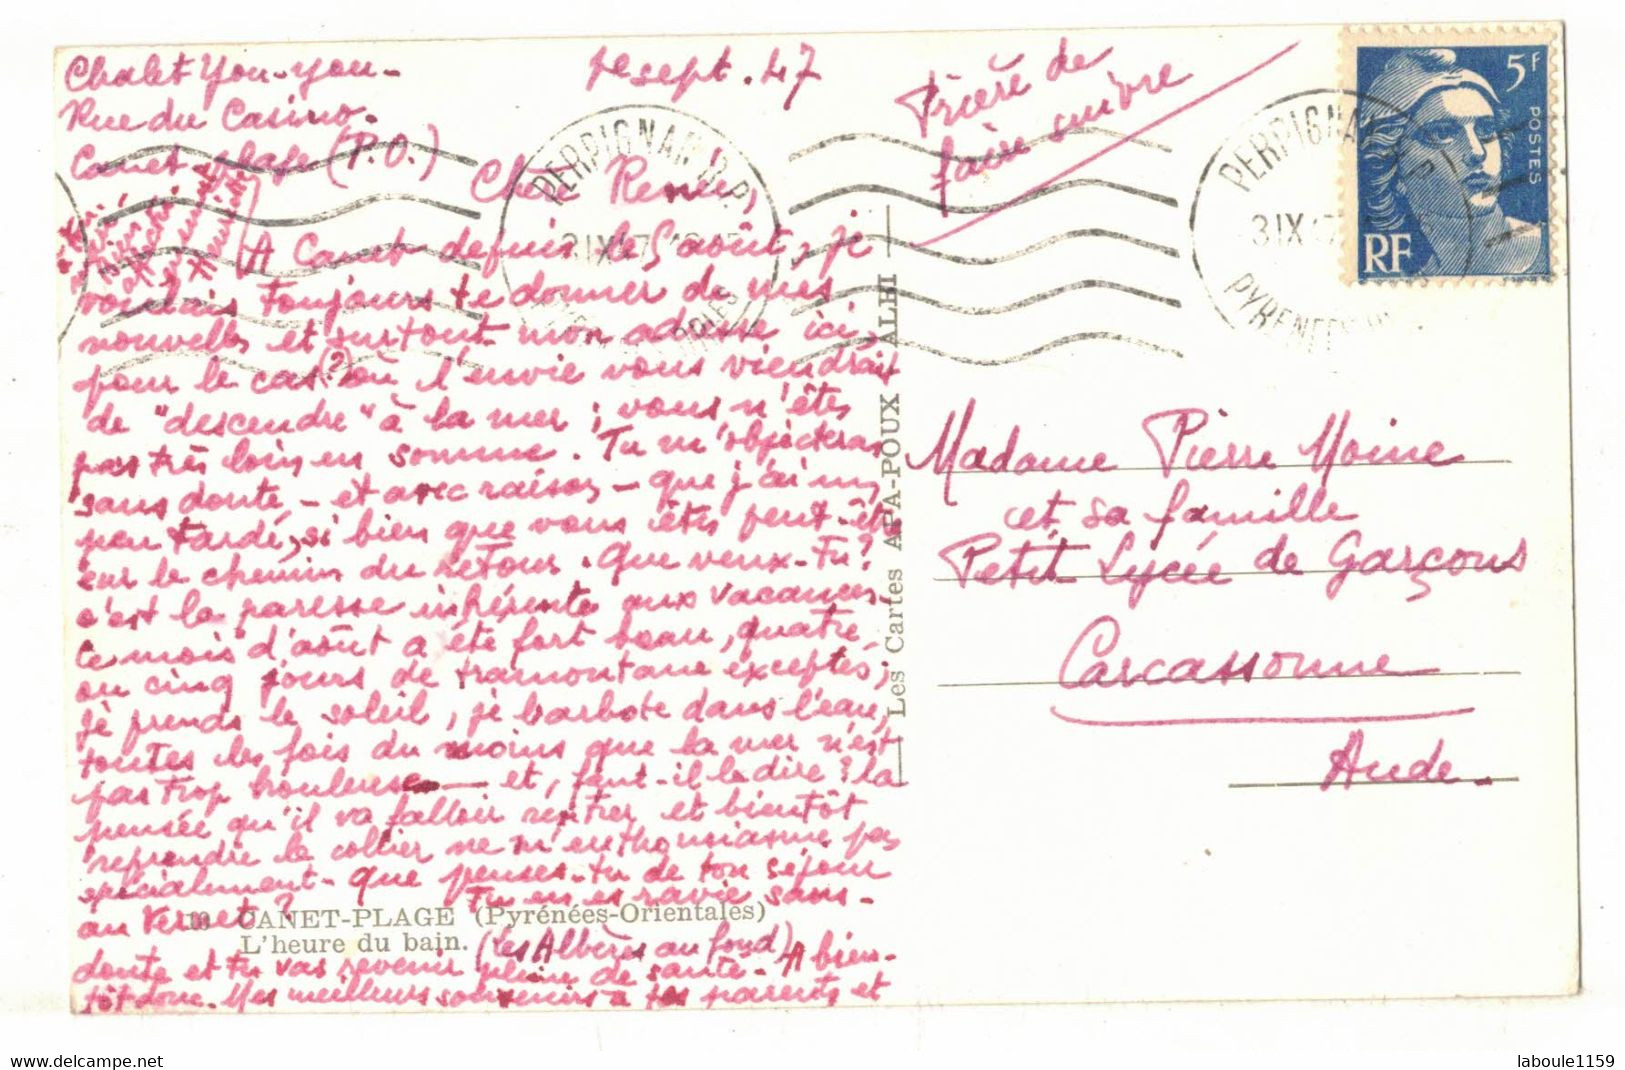 Chalet You-you-
Rue du Casino.
Canet-plage (P.O.)
1er sept. 47
Prière de
faire suivre
Chère Renée,
A Canet depuis le 5 août, je
voulais toujours te donner de mes
nouvelles et surtout mon adresse ici,
pour le cas (?) où l'envie vous viendrait
de "descendre" à la mer ; vous n'êtes
pas très loin en somme. Tu m'objecteras
sans doute, - et avec raison - que j'ai un
peu tardé, si bien que vous êtes peut-être
sur le chemin du retour. Que veux-tu?
c'est la paresse inhérente aux vacances.
Ce mois d'août a été fort beau, quatre
ou cinq jours de tramontane exceptés;
je prends le soleil, je barbote dans l'eau,
toutes les fois du moins que la mer n'est
pas trop houleuse — et, faut-il le dire? la
pensée qu'il va falloir rentrer et bientôt
reprendre le collier ne m'enthousiasme pas
spécialement - Que penses-tu de ton séjour
au Vernet? Tu en es ravie sans-
doute et tu vas revenir pleine de santé. A bien-
tôt donc. Mes meilleurs souvenirs à tes parents et
10 CANET-PLAGE (Pyrénées-Orientales)
L'heure du bain. (les Albères au fond)
Les Cartes APA-POUX ALBI
PERPIGNAN R.P.
3 IX 47
PERPIGNAN R.P.
3 IX 47
PYRENEES
5F
POSTES
RF
Madame Pierre Moine
et sa famille
Petit Lycée de Garçons
Carcassonne
Aude.
www.delcampe.net
laboule1159